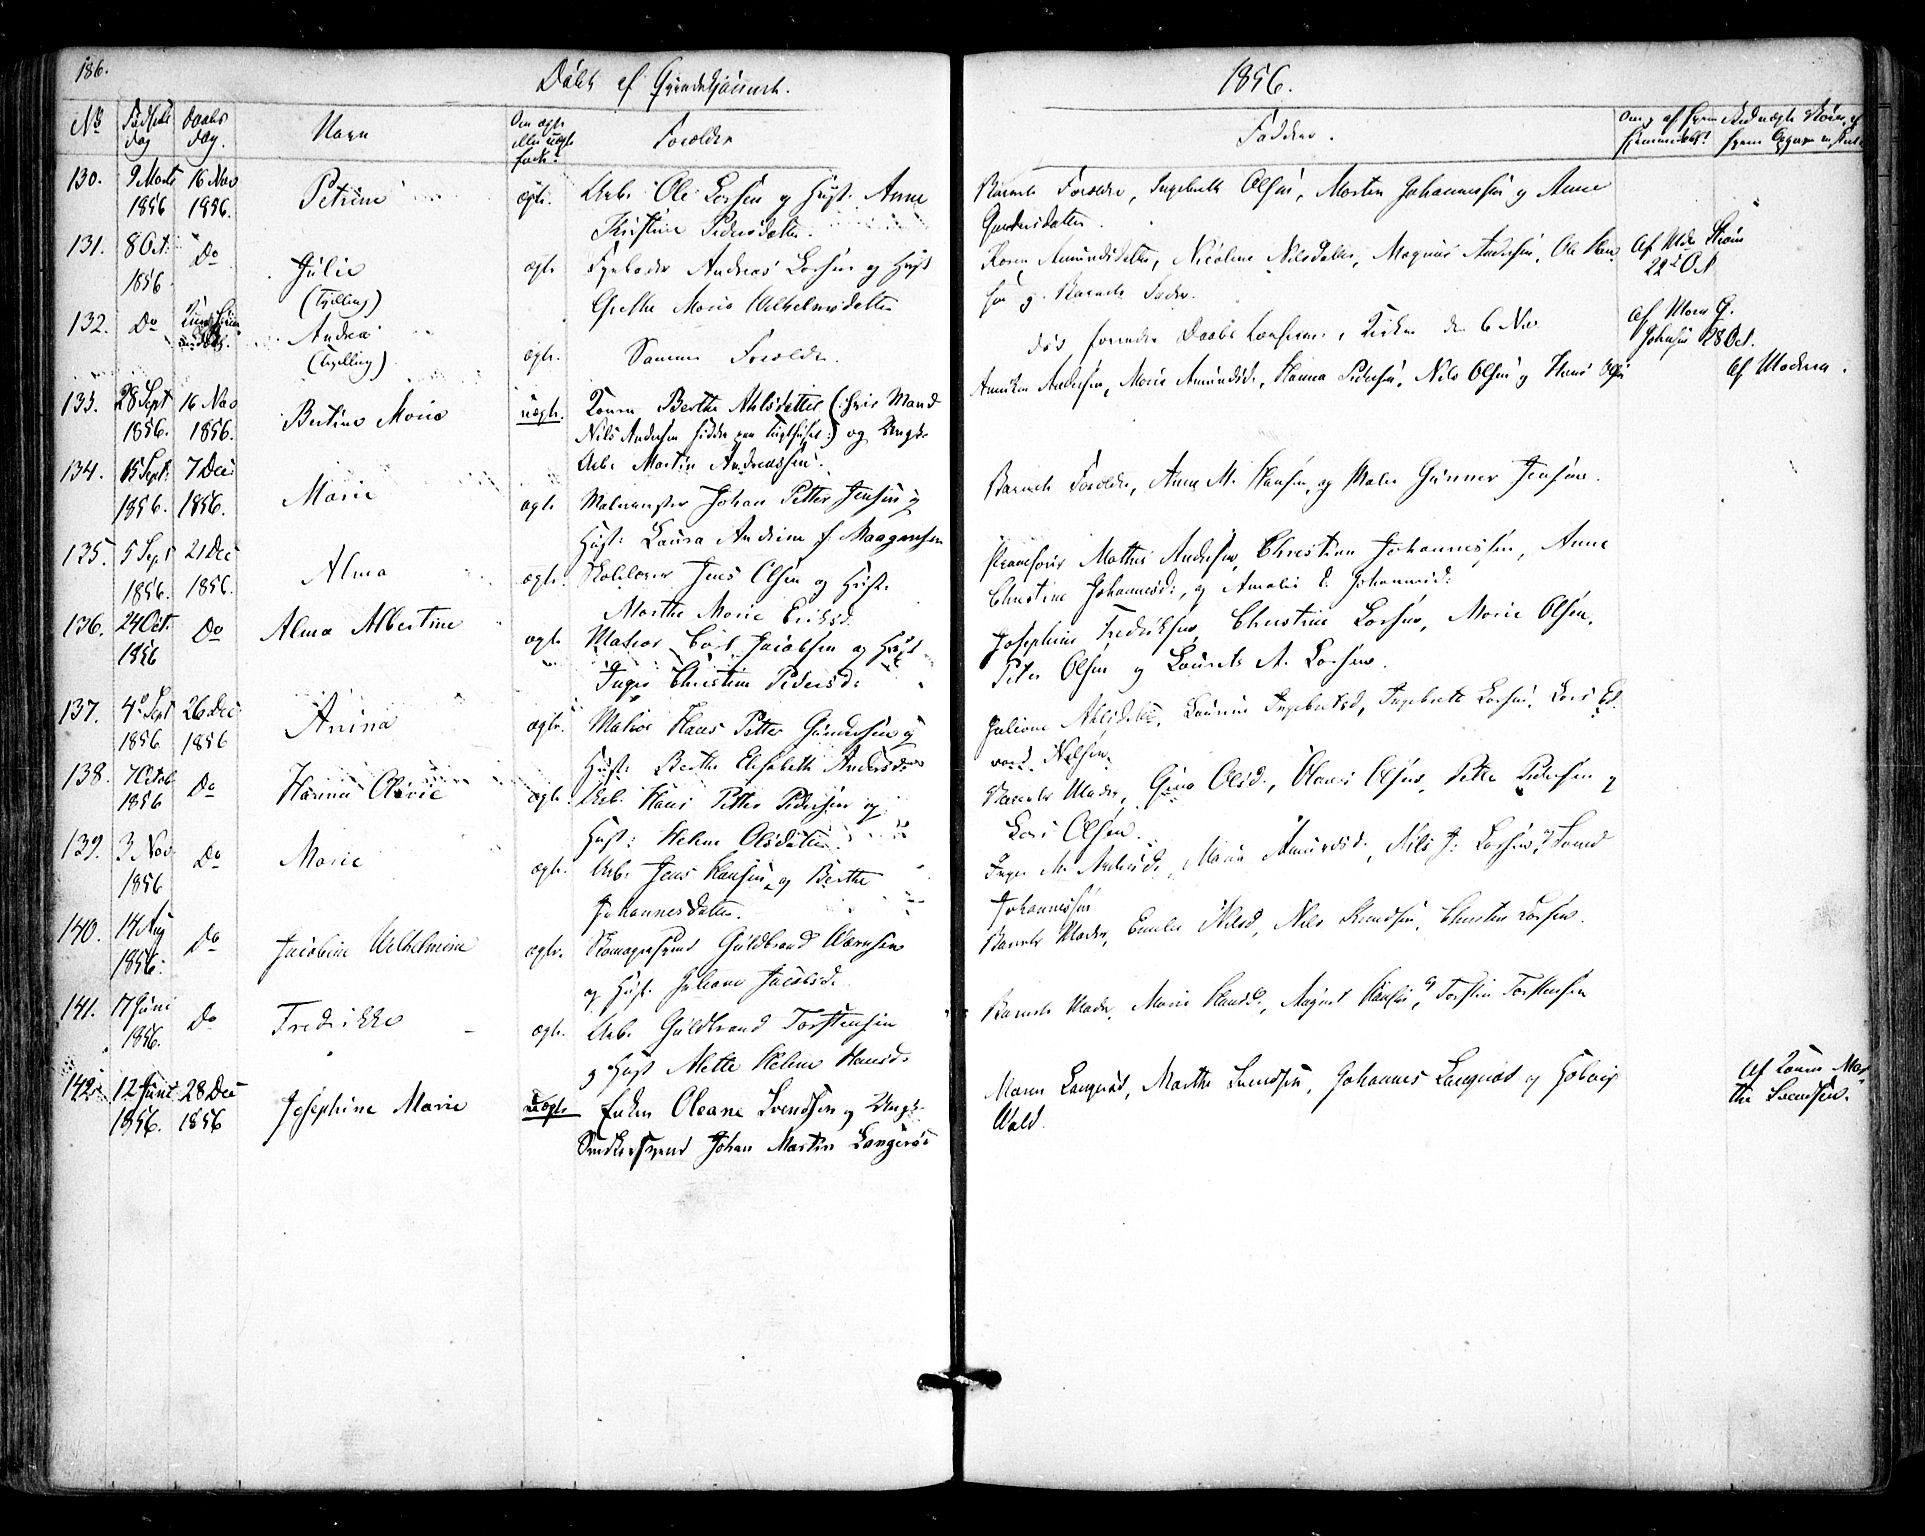 186.
Døbte af Qvindekjønnet.
1856.
No Fødsels dag Daabs dag. Navn Om ægte eller uægte født? Forældre
Fadder.
130. 9 Marts 1856 16 Nov 1856. Petrine ægte. Arb. Ole Larsen og Hust. Anne
Kristine Pedersdatter.
Barnets Forældre, Ingebreth Olsen, Morten Johannessen og Anne
Gundersdatter.
131. 8 Oct. 1856. Do Julie ægte Andreas Larsen og Hust
(Tvilling) Grethe Marie Wilhelmsdatter
Karen Amundsdatter, Nicoline Nilsdatter, Magnus Andersen, Ole Han
sen og Barnets Fader.
Af Mdm Strøm
22de Oct
132. Do Andrea ægte. Samme Forældre.
(Tvilling)
død forinden Daabs i Kirken den 6 Nov
Af Mdm J.
Johnsen 28 Oct.
133. 28 Sept 1856. 16 Nov 1856. Bertine Marie uægte. Konen Berthe Nilsdatter (: hvis Mand
Nils Andersen sidder paa Tugthuset:) og Ungk.
Arb. Martin Andreassen.
Andersen, Marie Amundsd., Hanna Pedersen, Nils Olsen og Hans Olsen
Af Moderen.
134. 15 Sept. 1856. 7 Dec. 1856. Marie ægte Malermester Johan Petter Jensen og
Hust. Laura Andrine f. Maagensen
Barnets Forældre, Anne M. Hansen, og Maler Gunner Jensen.
135. 5 Sept 1856. 21 Dec 1856. Alma ægte. Skolelærer Jens Olsen og Hust.
Marthe Marie Eriksd.
Mathis Andersen, Christian Johannessen, Anne
Christine Johannesd., og Amalie E. Johannesd.
136. 24 Oct. 1856 Do Alma Albertine ægte Matros Carl Jacobsen og Hust
Inger Christine Pedersd.
Josephine Fredriksen, Christine Larsen, Marie Olsen,
Peter Olsen og Laurits A. Larsen.
137. 4de Sept 1856 26 Dec 1856 Anina ægte. Matros Hans Petter Gundersen og
Hust. Berthe Elisabeth Andersd.
Juliane Nilsdatter, Laurine Ingebretsd, Ingebreth Larsen, Lars Ed
vard Nilsen.
138. 7 Octob 1856 Do Hanna Olavie ægte. Arb. Hans Petter Pedersen og
Hust. Helene Olsdatter.
Barnets Moder, Gina Olsd., Olaus Olsen, Petter Pedersen og
Lars Olsen.
139. 3 Nov 1856 Do Marie ægte. Arb. Jens Hansen og Berthe
Johannesdatter.
Inger M. Andersd., Maria Amundsd., Nils J. Larsen,
Johannessen
140. 14 Aug 1856. Do Jacobine Wilhelmine ægte. Skomagersvend Guldbrand
og Hust. Juliane Jacobsd.
Barnets Moder, Emilie Nilsd, Nils Knudsen, Christen Larsen.
141. 17 Juni 1856. Do Fredrikke ægte. Arb. Guldbrand Torstensen
og Hust Mette Helene Hansd.
Barnets Moder, Marie Hansd., August Hansen, Torstin Torstensen
142. 12 Juni 1856. 28 Dec 1856 Josephine Marie uægte Enken Oleane Svendsen og Ungk.
Snedkersvend Johan Martin Langerød
Maren Langerød, Marthe Svendsen, Johannes Langerød og Solveig
Wold.
Af Konen Mar
the Svendsen.